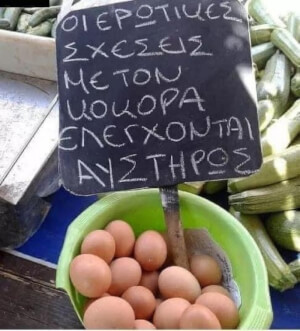 ΟΙ ΕΡΩΤΙΚΕΣ
ΣΧΕΣΕΙΣ
ΜΕ ΤΟΝ
ΚΟΚΟΡΑ
ΕΛΕΓΧΟΝΤΑΙ
ΑΥΣΤΗΡΩΣ